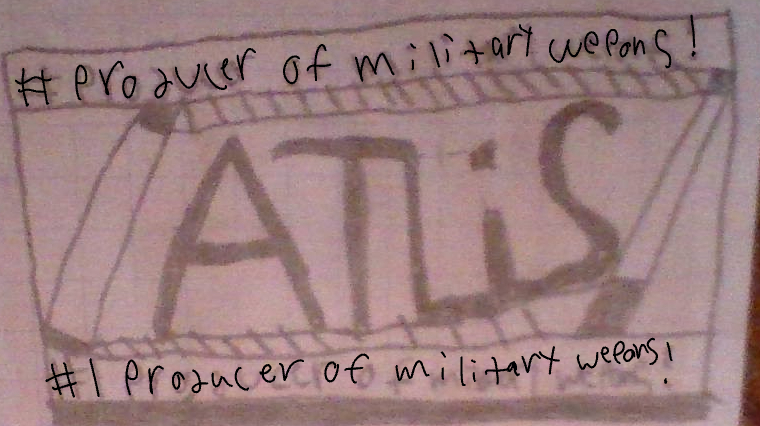 # Producer of military wepons!
ATLiS
#1 Producer of military wepons!